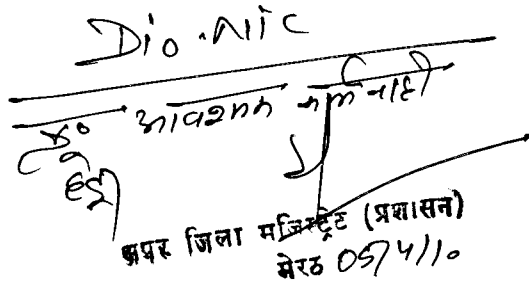 Dio. NIC
आवश्यक कार्यवाही
हेतु
अपर जिला मजिस्ट्रेट (प्रशासन)
मेरठ 05/4/10